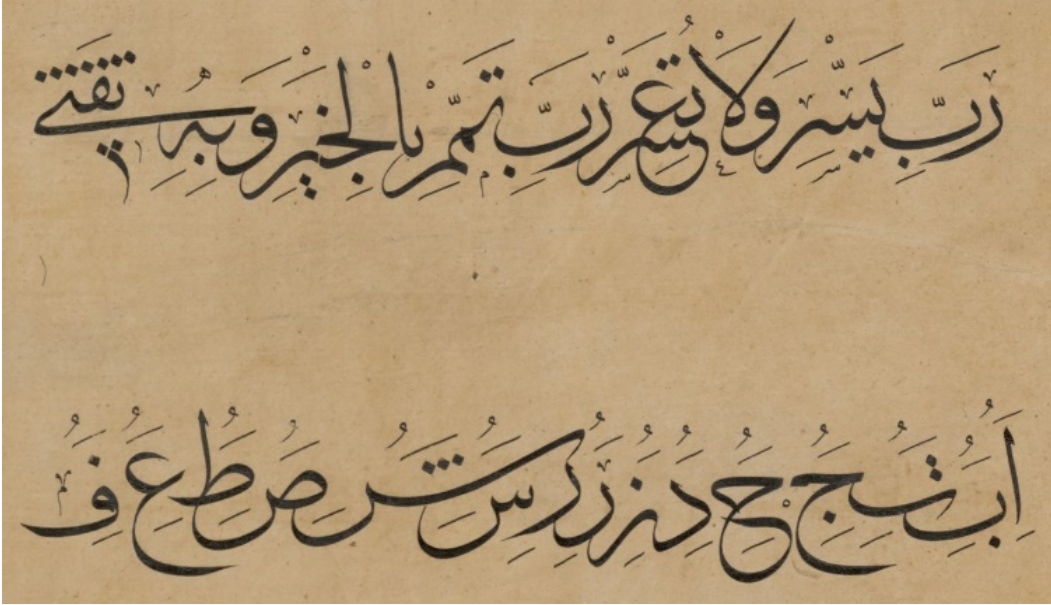 رَبِّ يَسِّرْ وَلَا تُعَسِّرْ رَبِّ تَمِّمْ بِالْخَيْرِ وَبِهِ ثِقَتِي
ا ب ث ج ح د ز ر س ش ص ط ع ف